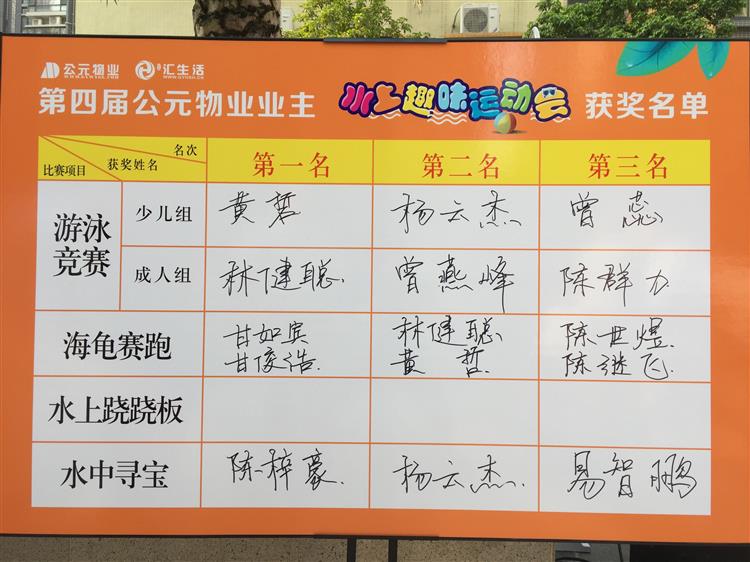 公元物业 汇生活
第四届公元物业业主 水上趣味运动会 获奖名单
名次
获奖姓名
比赛项目
第一名 第二名 第三名
游泳竞赛
少儿组 黄哲 杨云杰 曾蕊
成人组 林健聪 曾燕峰 陈群力
海龟赛跑
甘如宾 林健聪 陈世煜
甘俊浩 黄哲 陈继飞
水上跷跷板
水中寻宝 陈梓豪 杨云杰 易智鹏